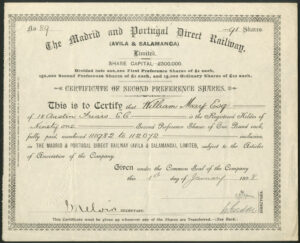 No 89 91 Shares
The Madrid and Portugal Direct Railway,
(AVILA & SALAMANCA)
Limited.
SHARE CAPITAL £300,000.
Divided into 100,000 First Preference Shares of £1 each,
150,000 Second Preference Shares of £1 each, and Ordinary Shares of each.
CERTIFICATE OF SECOND PREFERENCE SHARES.
This is to Certify that William Esq
of 18 Austin Friars EC is the Registered Holder of
Ninety one Second Preference Shares of One Pound each,
fully paid, numbered 111982 to 112072 inclusive
in THE MADRID & PORTUGAL DIRECT RAILWAY (AVILA & SALAMANCA), LIMITED, subject to the Articles
of Association of the Company.
Given under the Common Seal of the Company
this 1st day of January
SECRETARY.
DIRECTORS.
This Certificate must be given up whenever any of the Shares are Transferred.